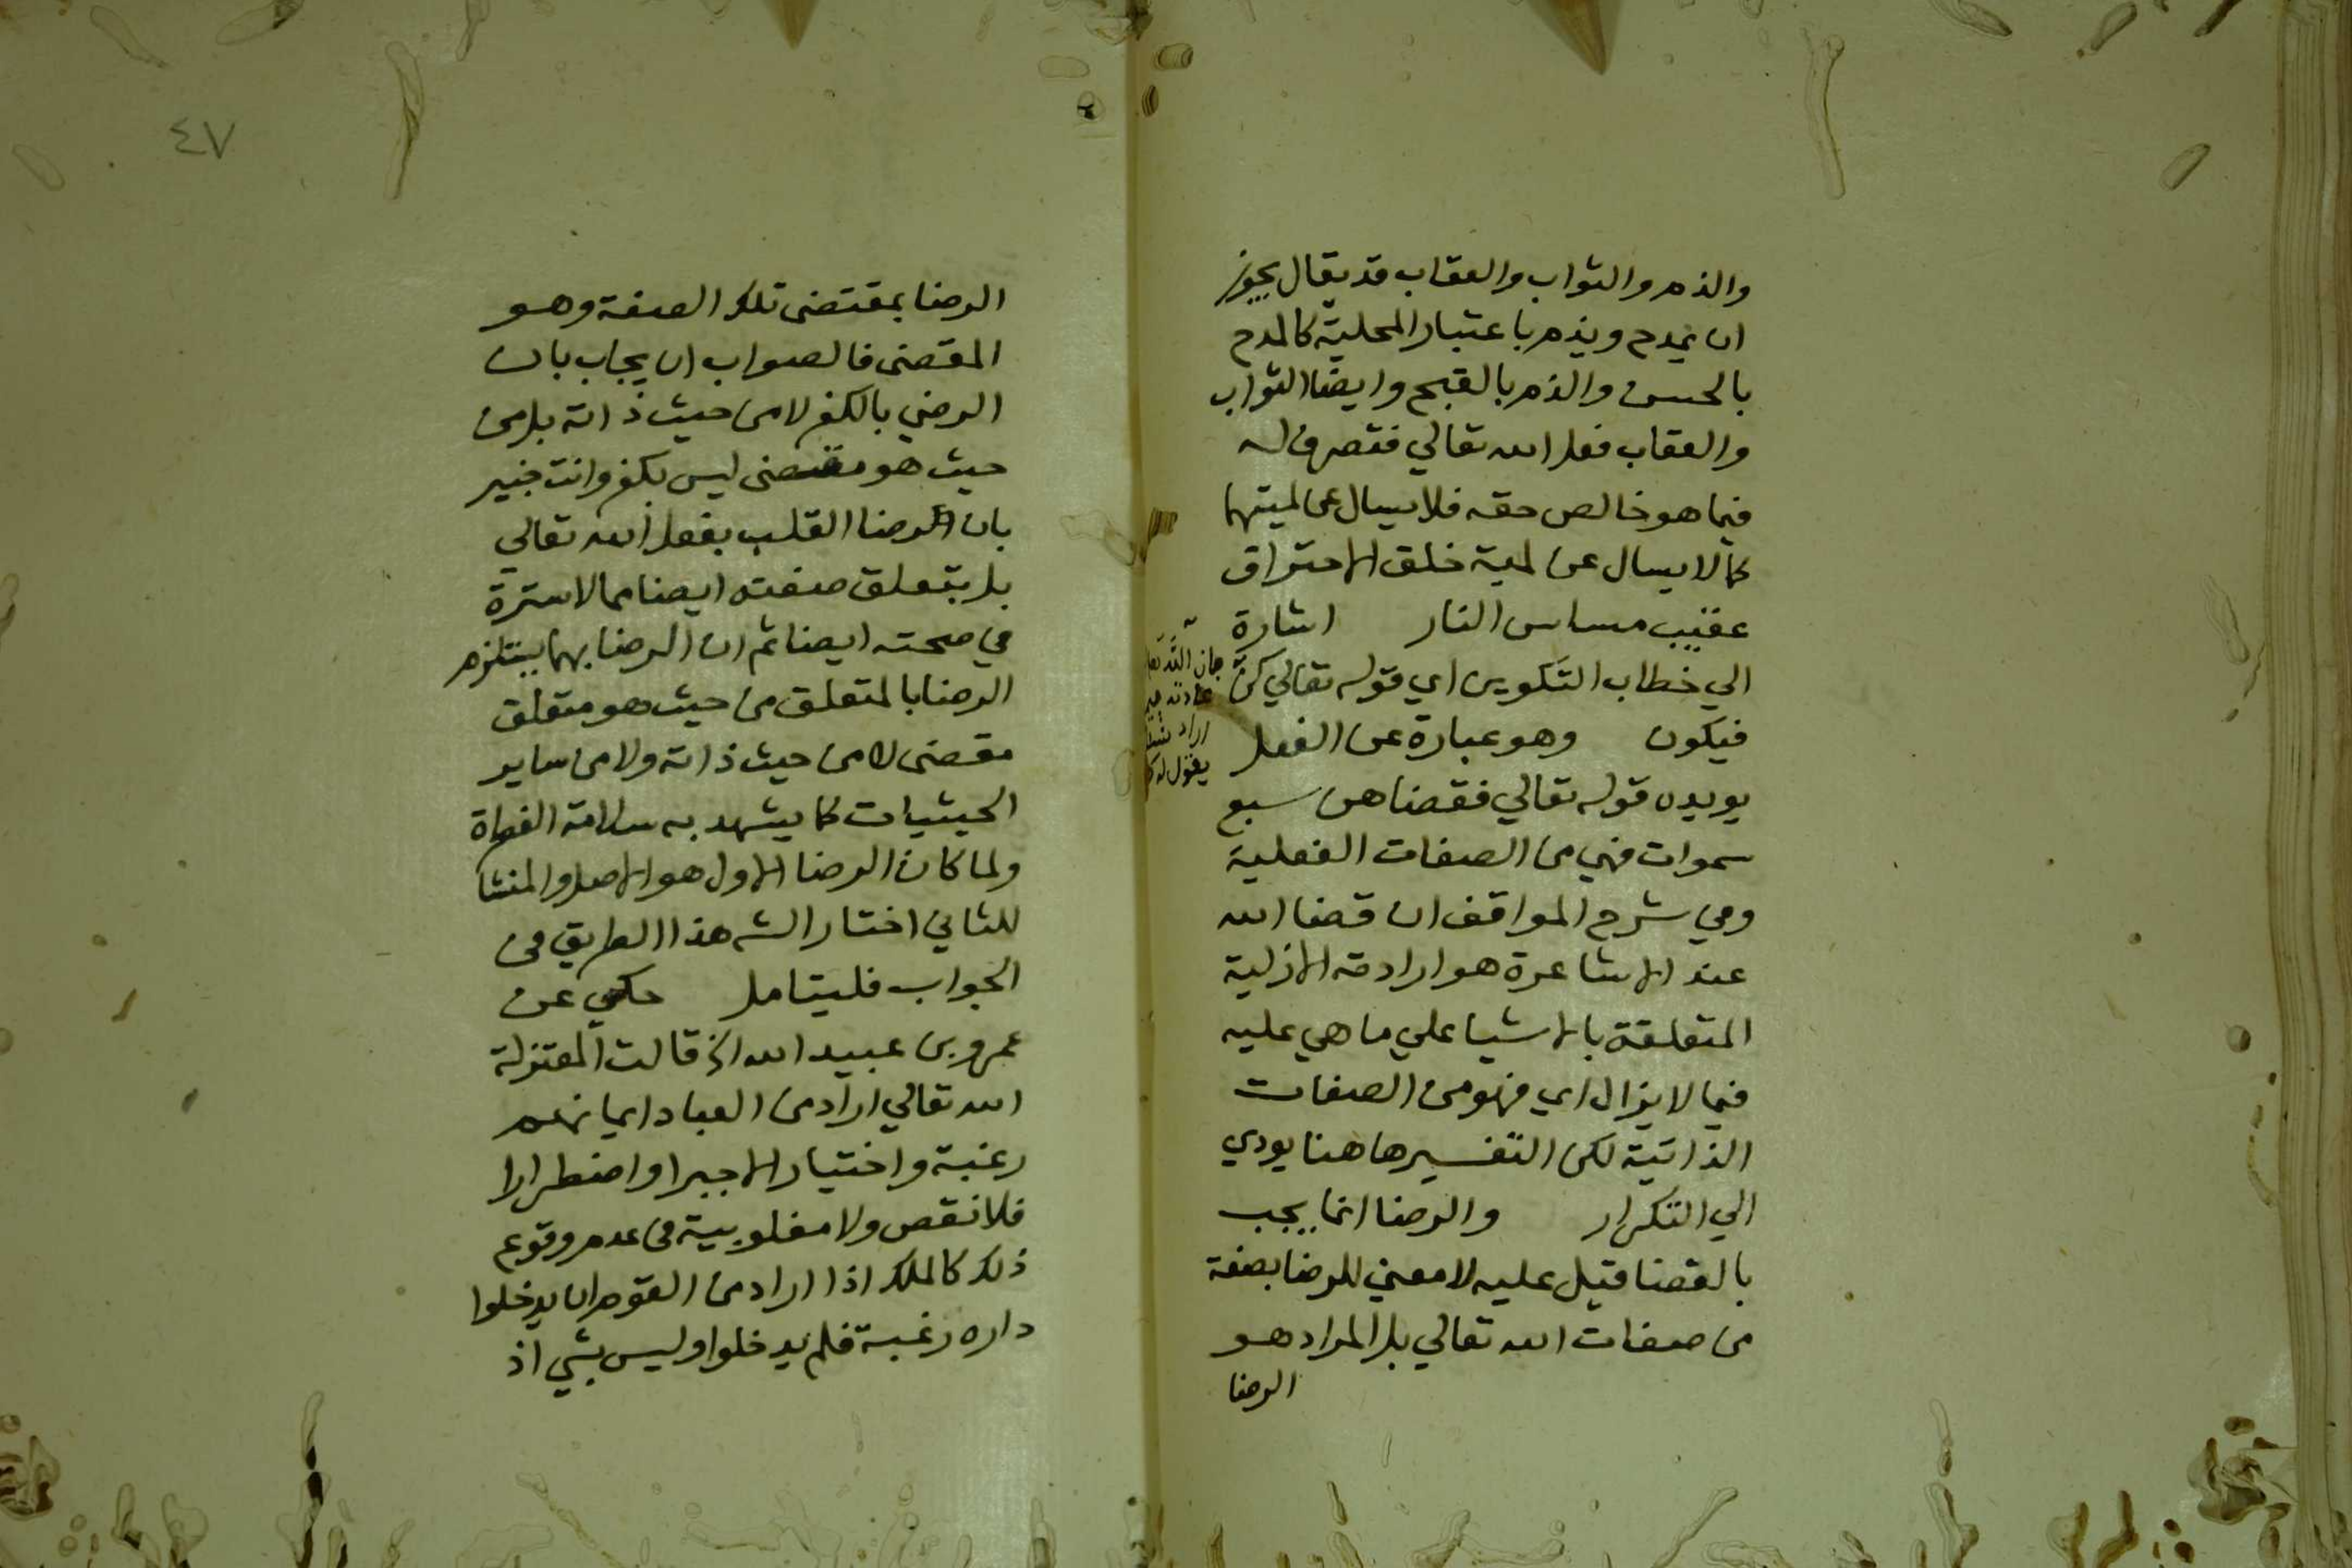 والذم والثواب والعقاب قد يقال يجوز
ان يمدح ويذم باعتبار المحلية كالمدح
بالحسن والذم بالقبح وايضا الثواب
والعقاب فعل الله تعالي فتصرف له
فيما هو خالص حقه فلا يسال عن لميتهما
كما لا يسال عن لمية خلق الاحتراق
عقيب مساس النار اشارة
الي خطاب التكوين اي قوله تعالي كن
فيكون وهو عبارة عن الفعل
يويده قوله تعالي فقضاهن سبع
سموات فهي من الصفات الفعلية
وفي شرح المواقف ان قضا الله
عند الاشاعرة هو ارادته الازلية
المتعلقة بالاشيا علي ما هي عليه
فيما لا يزال اي فهو من الصفات
الذاتية لكن التفسير ها هنا يودي
الي التكرار والرضا انما يجب
بالقضا قيل عليه لا معني للرضا بصفة
من صفات الله تعالي بل المراد هو
الرضا
الله تعا
عادته
اراد شيئا
يقول له
٤٧
الرضا بمقتضى تلك الصفة وهو
المقضى فالصواب ان يجاب بان
الرضي بالكفر لا من حيث ذاته بل من
حيث هو مقضى ليس بكفر وانت خبير
بان الرضا القلب بفعل الله تعالي
بل بتعلق صفته ايضا مما لا سترة
في صحته ايضا ثم ان الرضا بهما يستلزم
الرضا بالمتعلق من حيث هو متعلق
مقضى لا من حيث ذاته ولا من ساير
الحيثيات كما يشهد به سلامة الفطرة
ولما كان الرضا الاول هو الاصل والمنشا
للثاني اختار الشه هذا الطريق في
الجواب فليتامل حكي عن
عمرو بن عبيد الله الخ قالت المعتزلة
الله تعالي اراد من العباد ايمانهم
رغبة واختيارا لا جبرا واضطرارا
فلا نقص ولا مغلوبية في عدم وقوع
ذلك كالملك اذا اراد من القوم ان يدخلوا
داره رغبة فلم يدخلوا وليس بشي اذ